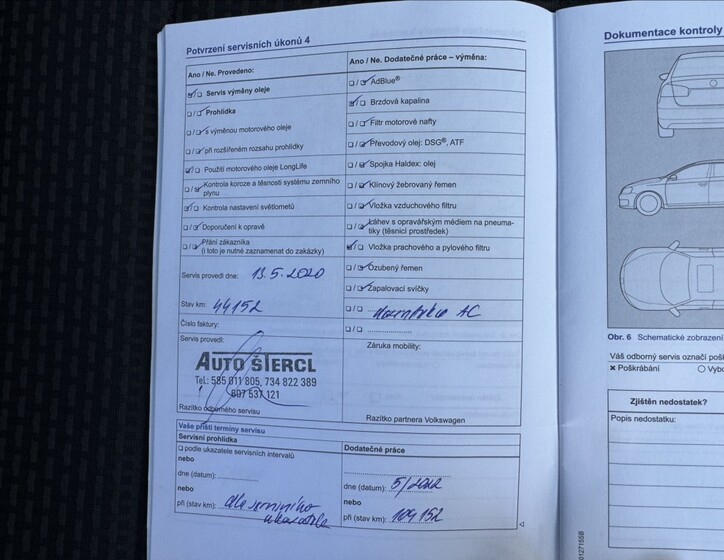 Potvrzení servisních úkonů 4
Ano / Ne. Provedeno:
Servis výměny oleje
Prohlídka
s výměnou motorového oleje
při rozšířeném rozsahu prohlídky
Použití motorového oleje LongLife
Kontrola koroze a těsnosti systému zemního
plynu
Kontrola nastavení světlometů
Doporučení k opravě
Přání zákazníka
(i toto je nutné zaznamenat do zakázky)
Servis provedl dne: 13.5.2020
Stav km: 44152
Číslo faktury:
Servis provedl:
AUTO ŠTERCL
Tel.: 585 011 805, 734 822 389
607 537 121
Razítko odborného servisu
Ano / Ne. Dodatečné práce – výměna:
AdBlue®
Brzdová kapalina
Filtr motorové nafty
Převodový olej: DSG®, ATF
Spojka Haldex: olej
Klínový žebrovaný řemen
Vložka vzduchového filtru
Láhev s opravářským médiem na pneuma-
tiky (těsnicí prostředek)
Vložka prachového a pylového filtru
Ozubený řemen
Zapalovací svíčky
AC
Záruka mobility:
Razítko partnera Volkswagen
Vaše příští termíny servisu
Servisní prohlídka
podle ukazatele servisních intervalů
nebo
dne (datum):
nebo
při (stav km): dle servisního
ukazatele
Dodatečné práce
dne (datum): 5/2022
nebo
při (stav km): 104 152
Dokumentace kontroly
Obr. 6 Schematické zobrazení
Váš odborný servis označí
Poškrábání
Zjištěn nedostatek?
Popis nedostatku: